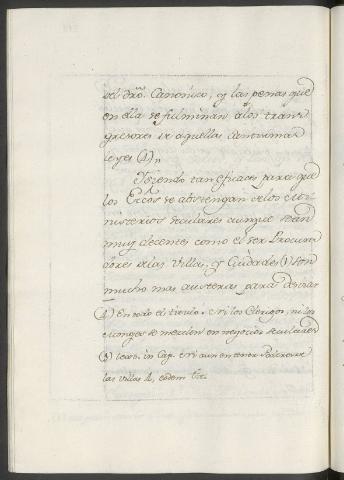 del dro. Canonico, y las penas que
en ella se fulminan a los trans
gresores de aquellas santisimas
leyes (1)„
Y siendo tan eficaces para que
los Ecc.os se abstengan de los Mi
nisterios seculares aunque sean
muy decentes como el ser Procura
dores de las Villas, y Ciudades () son
mucho mas austeras para desviar
() En todo el titulo. Ni los Clerigos, ni los
Monges se mezclen en negocios seculares
() in Cap. Ni aun en tener
las Villas & eodem tit.